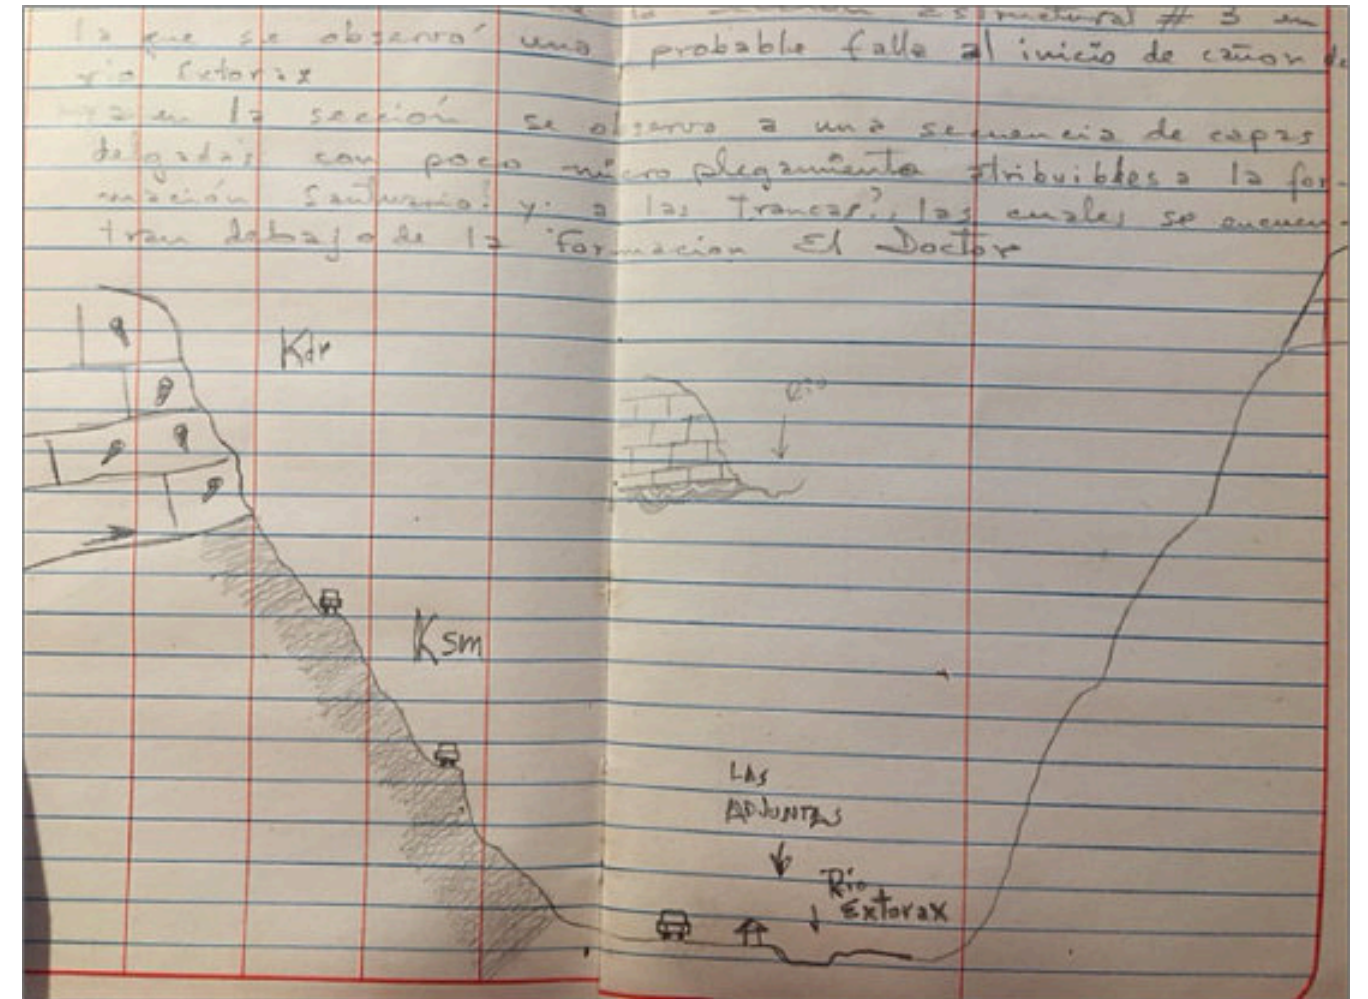 la sección estructural # 3 en
la que se observó una probable falla al inicio de cañon de
rio Extorax
en la sección se observo a una secuencia de capas
delgadas con poco micro plegamiento atribuibles a la for-
mación Santuario? y a las Trancas?, las cuales se encuen-
tran debajo de la Formacion El Doctor
Kdr
Rio
Ksm
LAS
ADJUNTAS
Rio
Extorax